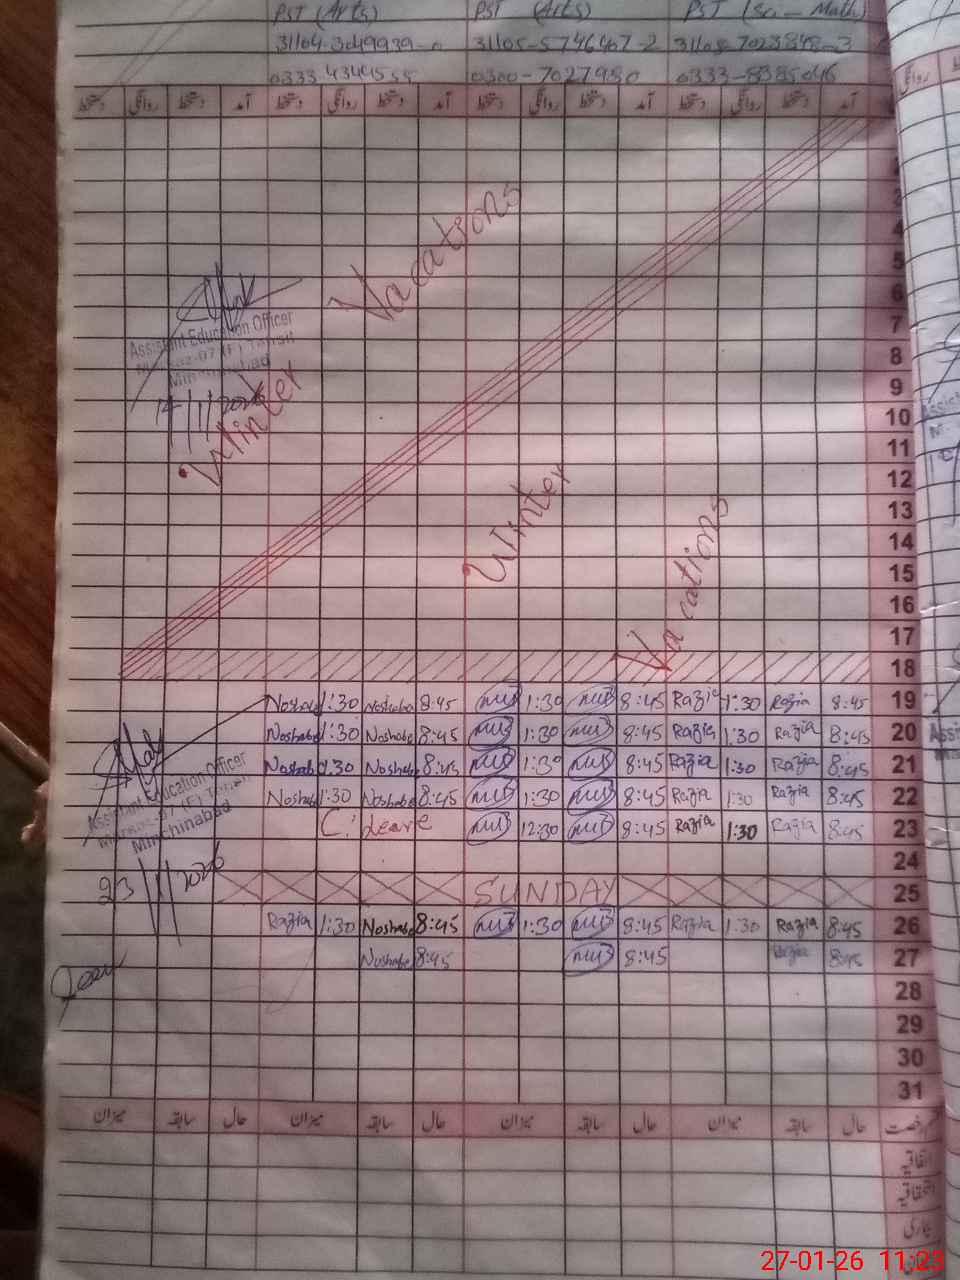 PST (Arts) PST (Arts) PST (Sci-Math)
31104-3049939-0 31105-5746407-2 31105-7023848-3
0333 4344555 0300-7027980 0333-8385046
دستخط روانگی دستخط آمد دستخط روانگی دستخط آمد دستخط روانگی دستخط آمد دستخط روانگی دستخط آمد
Winter Vacations
Assistant Education Officer
Minchinabad
14/1/2026
Winter Vacations
3
4
5
6
7
8
9
10
11
12
13
14
15
16
17
18
Noshaba 1:30 Noshaba 8:45 1:30 8:45 Razia 1:30 Razia 8:45 19
Noshaba 1:30 Noshaba 8:45 1:30 8:45 Razia 1:30 Razia 8:45 20
Noshaba 1:30 Noshaba 8:45 1:30 8:45 Razia 1:30 Razia 8:45 21
Noshaba 1:30 Noshaba 8:45 1:30 8:45 Razia 1:30 Razia 8:45 22
C. Leave 12:30 8:45 Razia 1:30 Razia 8:45 23
Assistant Education Officer
Minchinabad
23/1/2026
24
SUNDAY 25
Razia 1:30 Noshaba 8:45 1:30 8:45 Razia 1:30 Razia 8:45 26
Noshaba 8:45 8:45 Razia 8:45 27
28
29
30
31
میزان سابقہ حال میزان سابقہ حال میزان سابقہ حال میزان سابقہ حال رخصت
اتفاقیہ
استحقاقیہ
بیماری
27-01-26 11:23